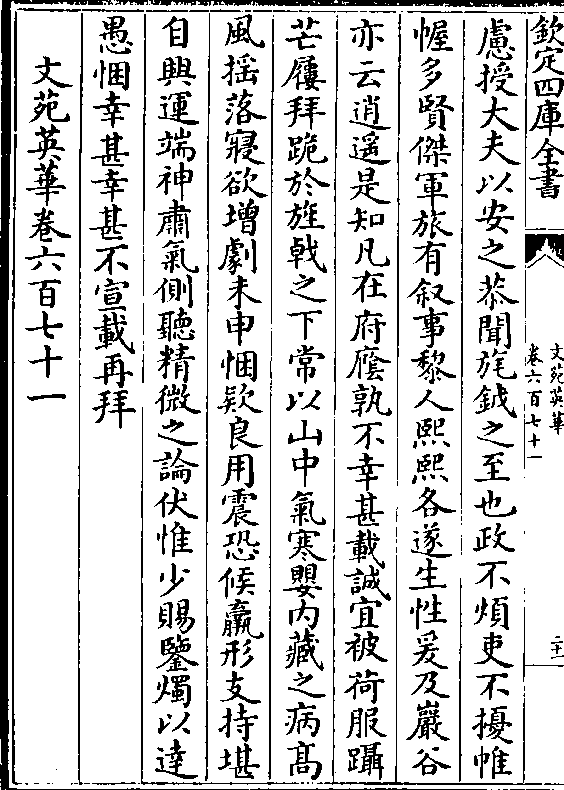 欽定四庫全書
文苑英華
卷六百七十一
二十一
慮授大夫以安之恭聞旄鉞之至也政不煩吏不擾帷
幄多賢傑軍旅有叙事黎人熙熙各遂生性爰及巖谷
亦云逍遥是知凡在府廕孰不幸甚載誠宜被荷服躡
芒屨拜跪於旌戟之下常以山中氣寒嬰内藏之病髙
風揺落寢欲增劇未申悃欵良用震恐候羸形支持堪
自興運端神肅氣側聽精微之論伏惟少賜鑒燭以達
愚悃幸甚幸甚不宣載再拜
文苑英華卷六百七十一